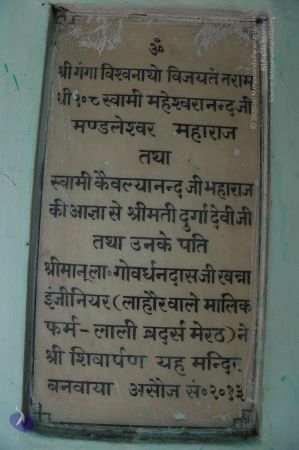 ॐ
श्री गंगा विश्वनाथो विजयतेतराम्
श्री १०८ स्वामी महेश्वरानन्दजी
मण्डलेश्वर महाराज
तथा
स्वामी कैवल्यानन्दजी महाराज
की आज्ञा से श्रीमती दुर्गादेवीजी
तथा उनके पति
श्रीमान् ला० गोवर्धनदासजी खन्ना
इंजीनियर (लाहौरवाले मालिक
फर्म - लाली ब्रदर्स मेरठ) ने
श्री शिवार्पण यह मन्दिर
बनवाया असौज सं० २०१३